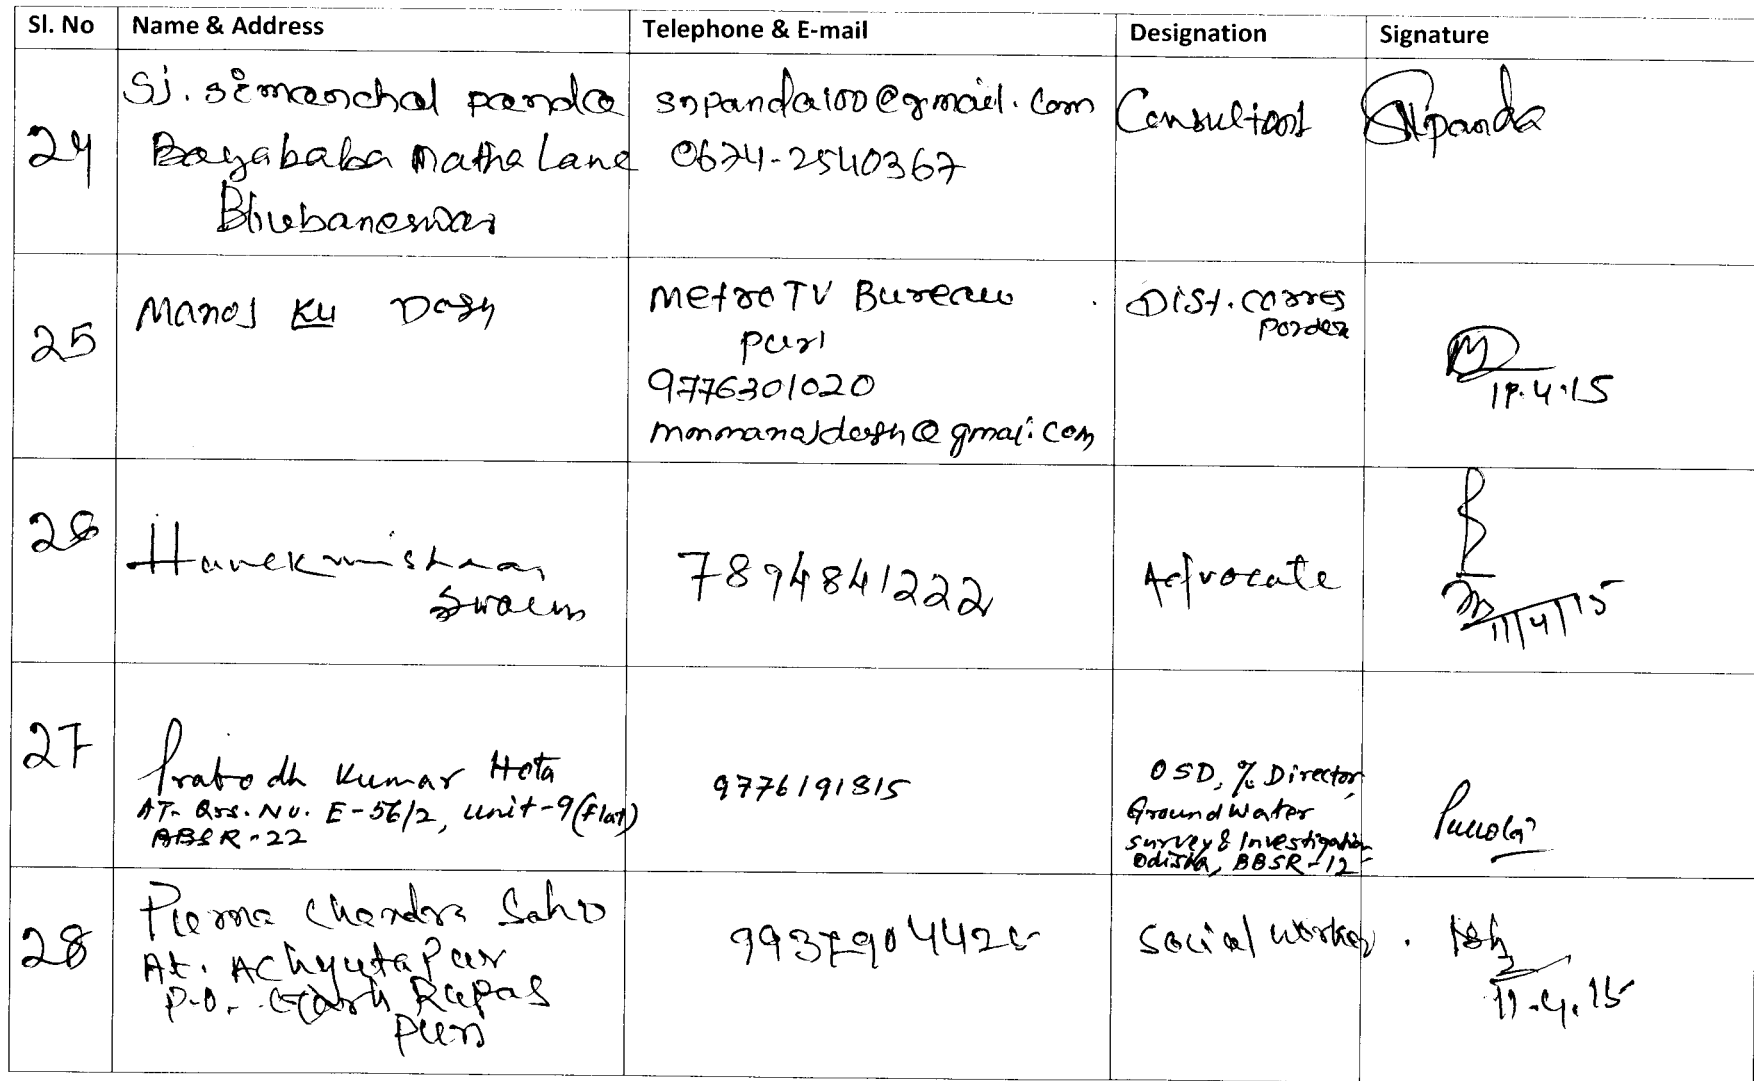 Sl. No Name & Address Telephone & E-mail Designation Signature
24
Sj. simanchal panda
Bayababa matha Lane
Bhubaneswar
snpanda100@gmail.com
0674-2540367
Consultant
SNpanda
25
Manoj Ku Dash
Metro TV Bureau
puri
9776301020
@gmai.com
Dist. corres
ponden
11.4.15
26
Swain
7894841222
Advocate
11/4/15
27
Prabodh Kumar Hota
AT- Qrs. No. E-56/2, unit-9 (Flat)
BBSR-22
9776191815
OSD, % Director,
Ground Water
survey & Investigation
Odisha, BBSR-12
28
Purna Chandra Sahoo
At. Achyutapur
P.O. Garh Rupas
Puri
Social worker.
11.4.15